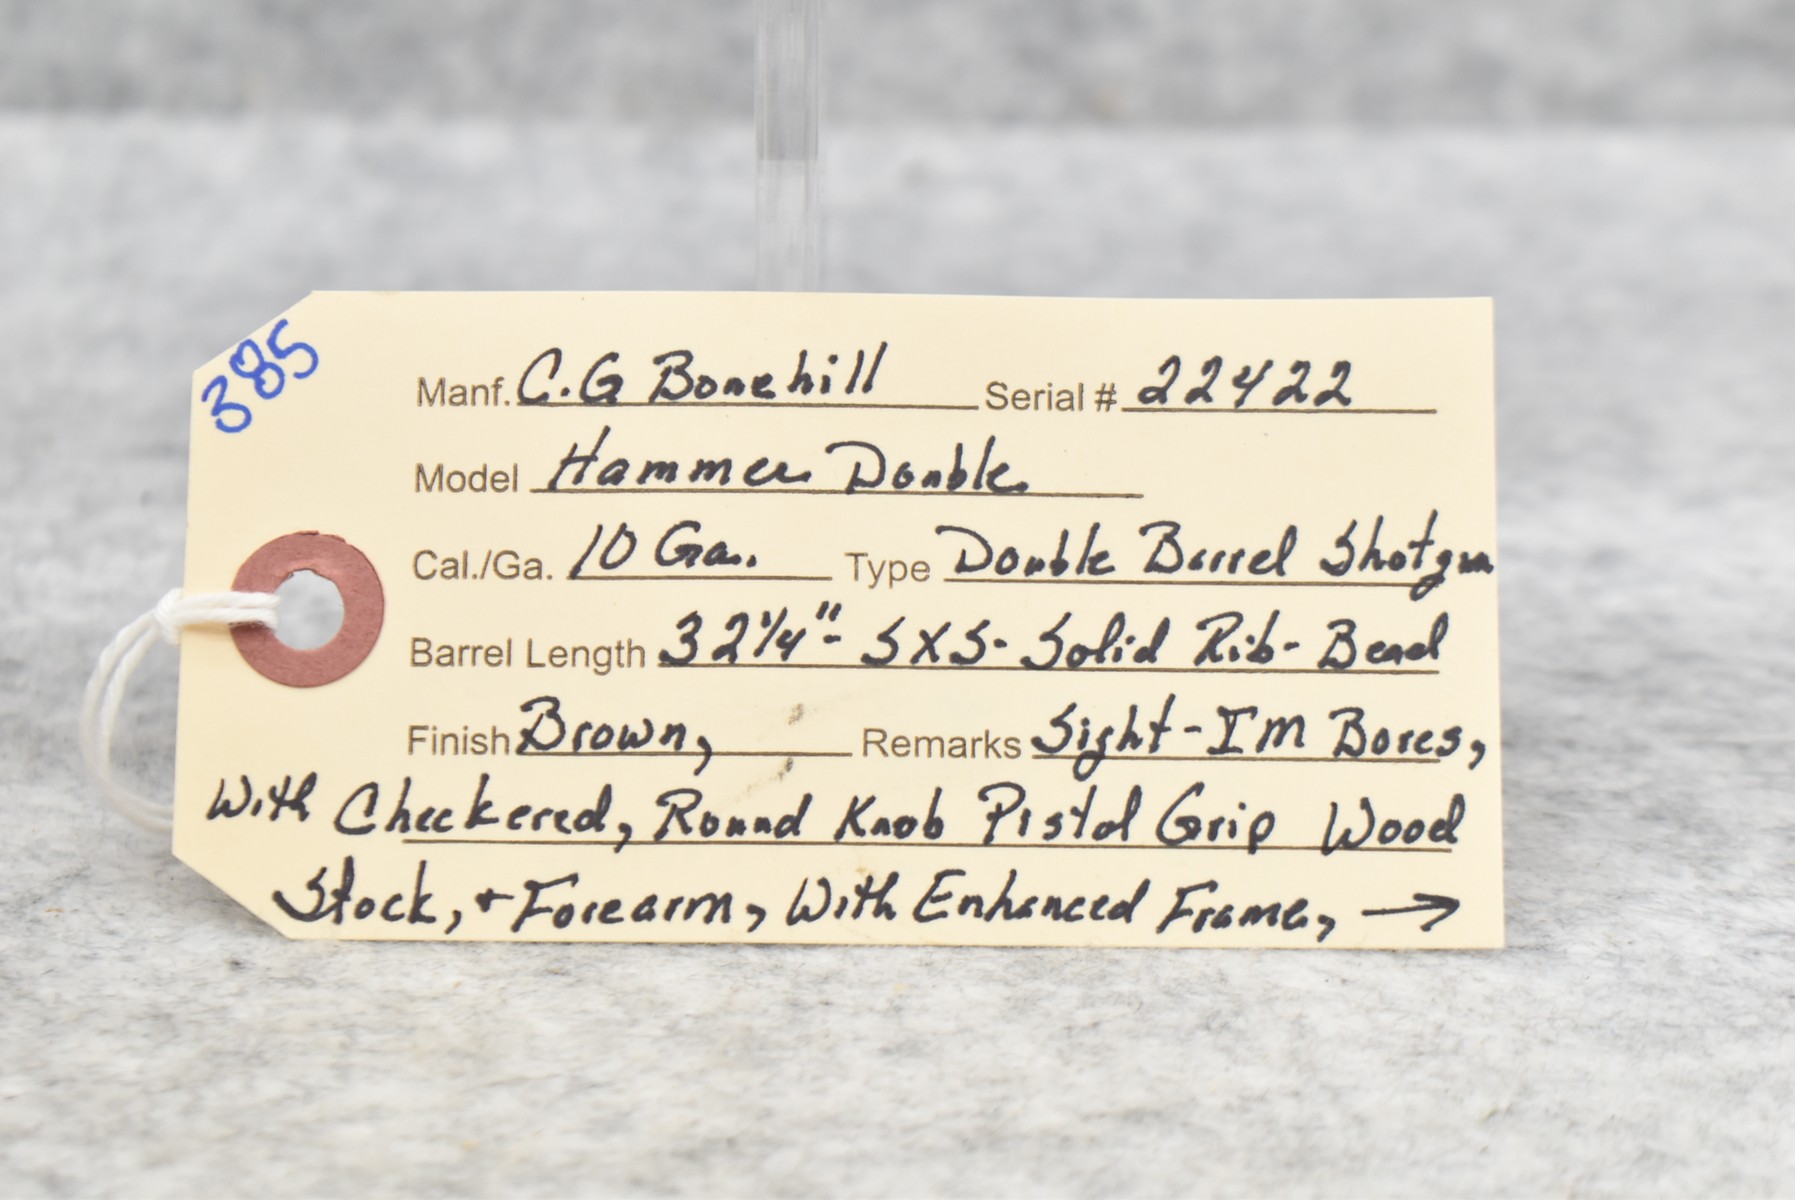 385
Manf. C.G Bonehill Serial # 22422
Model Hammer Double
Cal./Ga. 10 Ga. Type Double Barrel Shotgun
Barrel Length 32 1/4"- SXS- Solid Rib- Bead
Finish Brown, Remarks Sight-IM Bores,
With Checkered, Round Knob Pistol Grip Wood
Stock, + Forearm, With Enhanced Frame, →